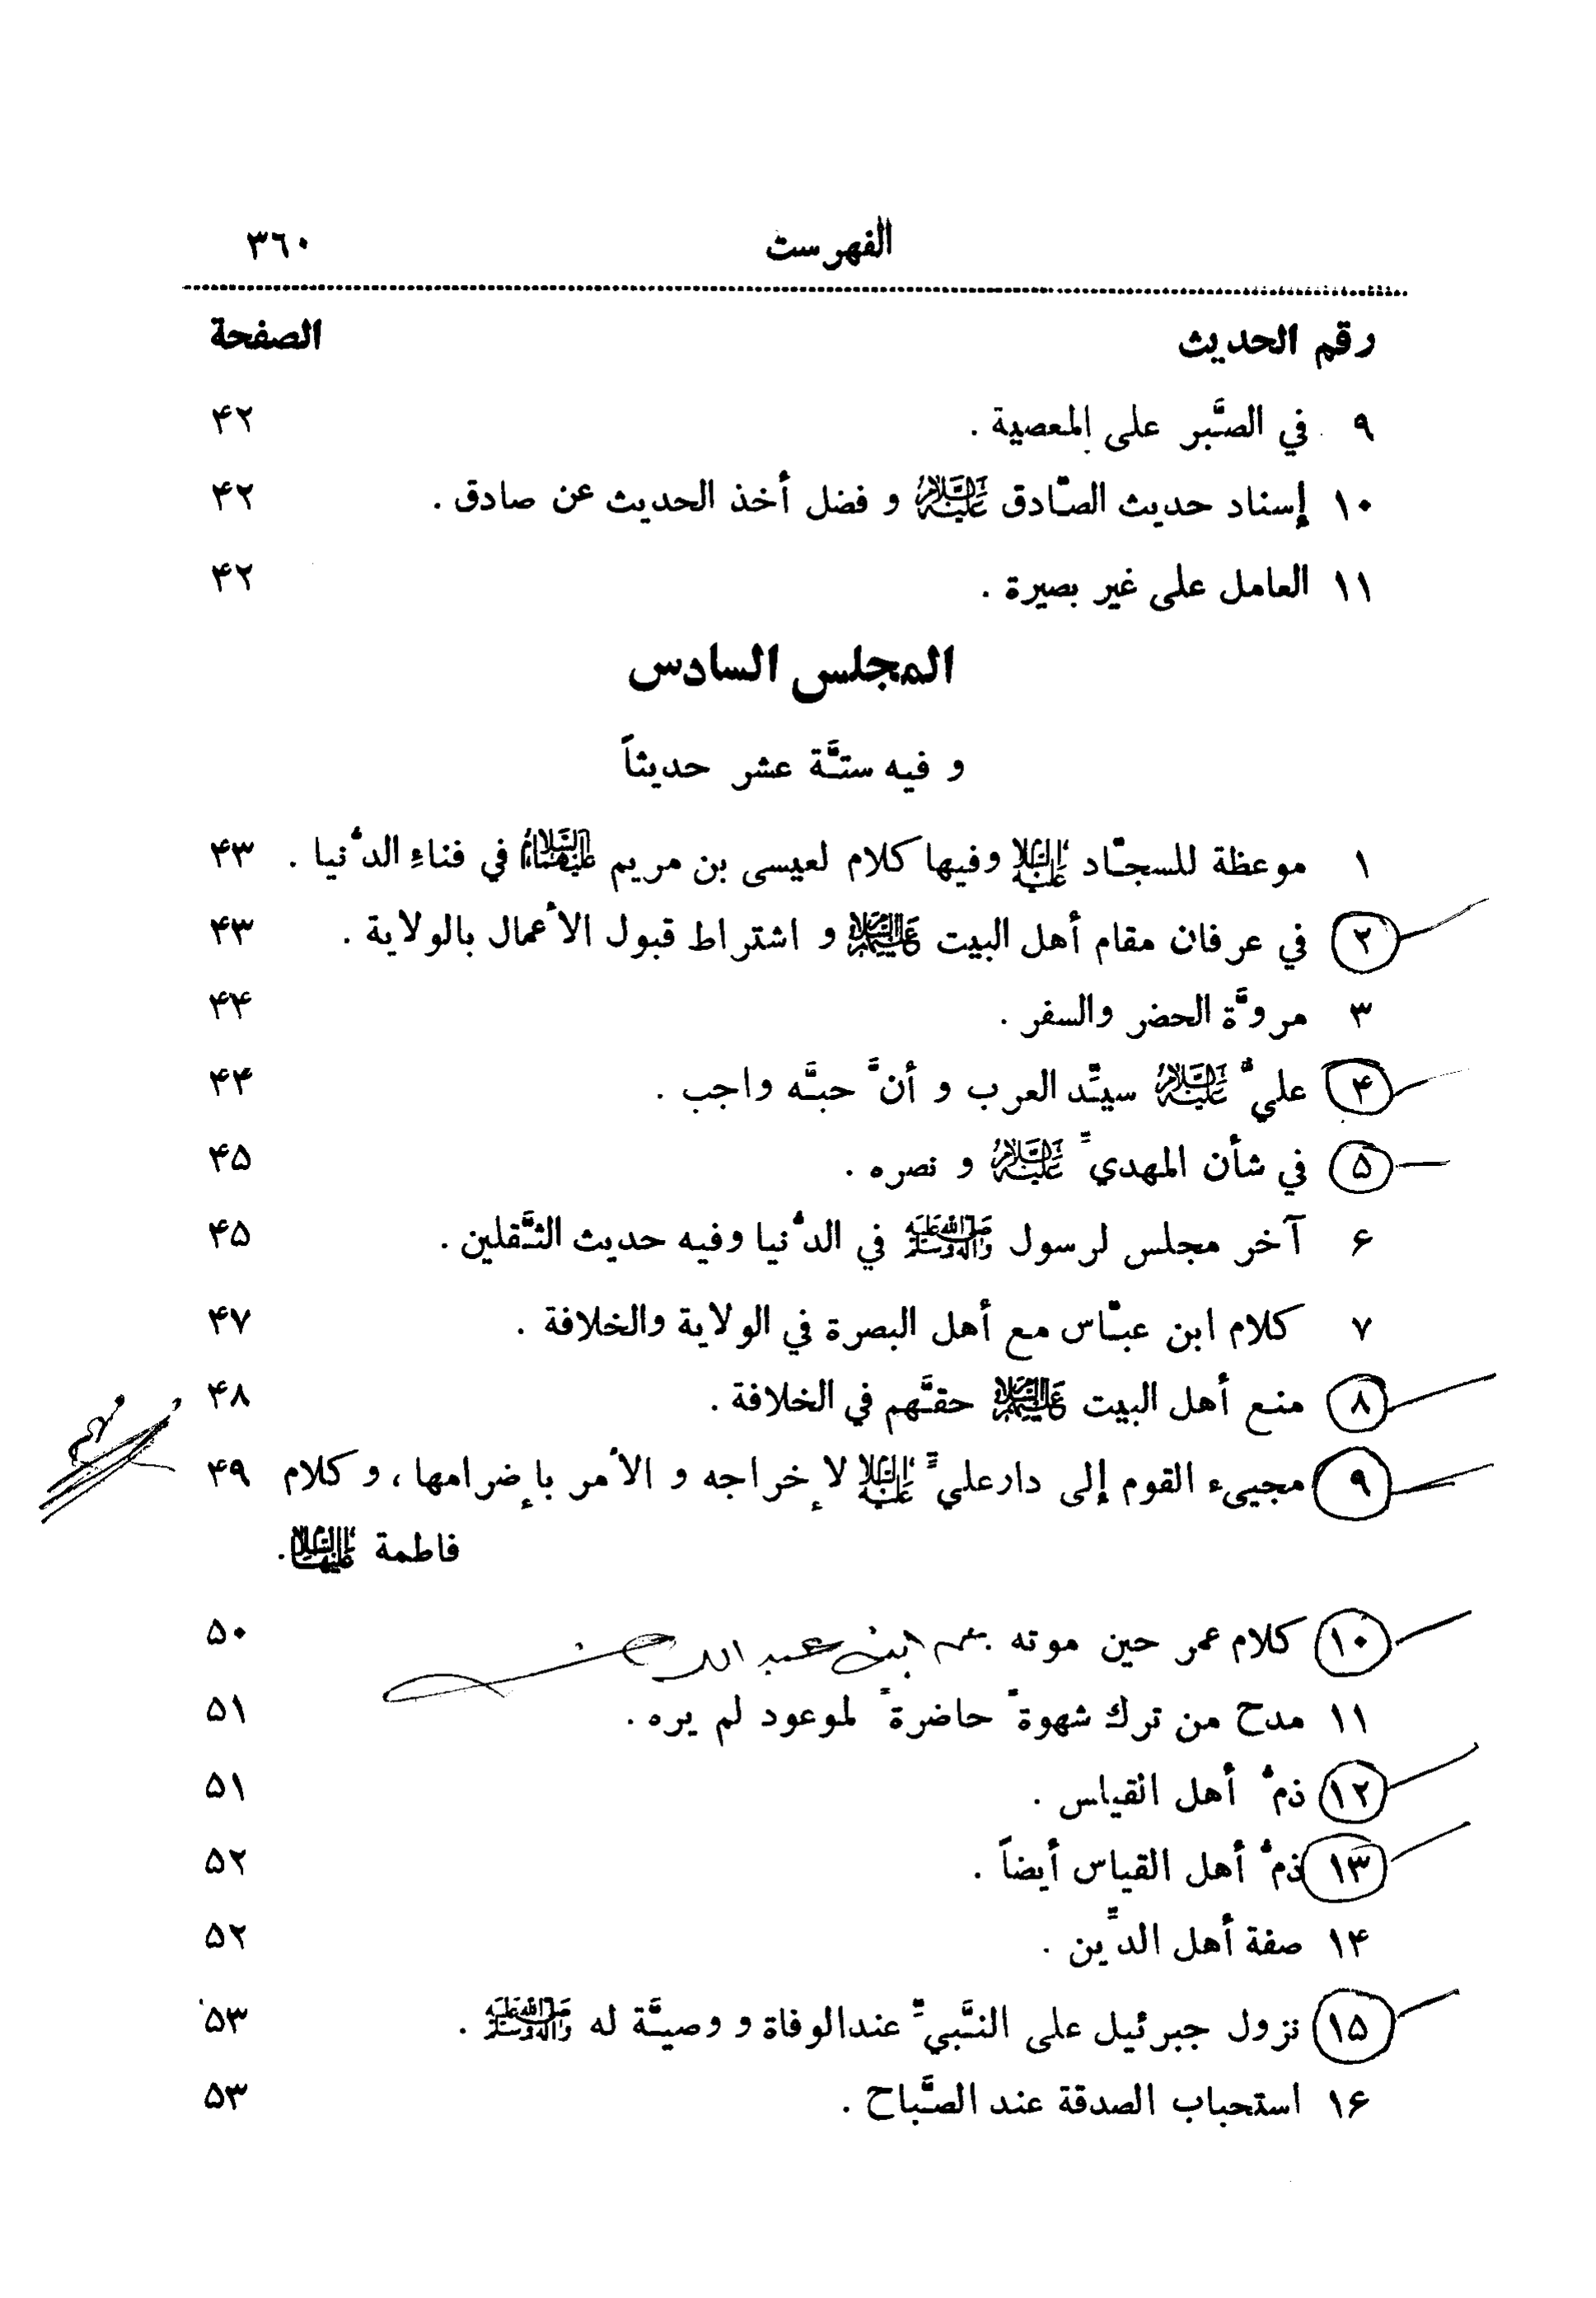 الفهرست ٣٦٠
رقم الحديث الصفحة
٩ في الصَّبر على المعصية . ۴٢
١٠ إسناد حديث الصّادق عَلَيْهِ السَّلَامُ و فضل أخذ الحديث عن صادق . ۴٢
١١ العامل على غير بصيرة . ۴٢
المجلس السادس
و فيه ستَّة عشر حديثاً
١ موعظة للسجّاد عَلَيْهِ السَّلَامُ وفيها كلام لعيسى بن مريم عَلَيْهِمَا السَّلَامُ في فناءِ الدُّنيا . ۴٣
٢ في عرفان مقام أهل البيت عَلَيْهِمُ السَّلَامُ و اشتراط قبول الأعمال بالولاية . ۴٣
٣ مروَّة الحضر والسفر . ۴۴
۴ عليٌّ عَلَيْهِ السَّلَامُ سيّد العرب و أنَّ حبَّه واجب . ۴۴
۵ في شأن المهديِّ عَلَيْهِ السَّلَامُ و نصره . ۴۵
۶ آخر مجلس لرسول صَلَّى اللهُ عَلَيْهِ وَآلِهِ وَسَلَّمَ في الدُّنيا وفيه حديث الثَّقلين . ۴۵
٧ كلام ابن عبّاس مع أهل البصرة في الولاية والخلافة . ۴٧
٨ منع أهل البيت عَلَيْهِمُ السَّلَامُ حقَّهم في الخلافة . ۴٨
٩ مجيىء القوم إلى دار عليٍّ عَلَيْهِ السَّلَامُ لإخراجه و الأمر بإضرامها ، و كلام ۴٩
فاطمة عَلَيْهَا السَّلَامُ .
١٠ كلام عمر حين موته . ابنه عبد الله ۵٠
١١ مدح من ترك شهوةً حاضرةً لموعود لم يره . ۵١
١٢ ذمُّ أهل القياس . ۵١
١٣ ذمُّ أهل القياس أيضاً . ۵٢
١۴ صفة أهل الدِّين . ۵٢
١۵ نزول جبرئيل على النَّبيِّ عندالوفاة و وصيَّة له صَلَّى اللهُ عَلَيْهِ وَآلِهِ وَسَلَّمَ . ۵٣
١۶ استحباب الصدقة عند الصَّباح . ۵٣